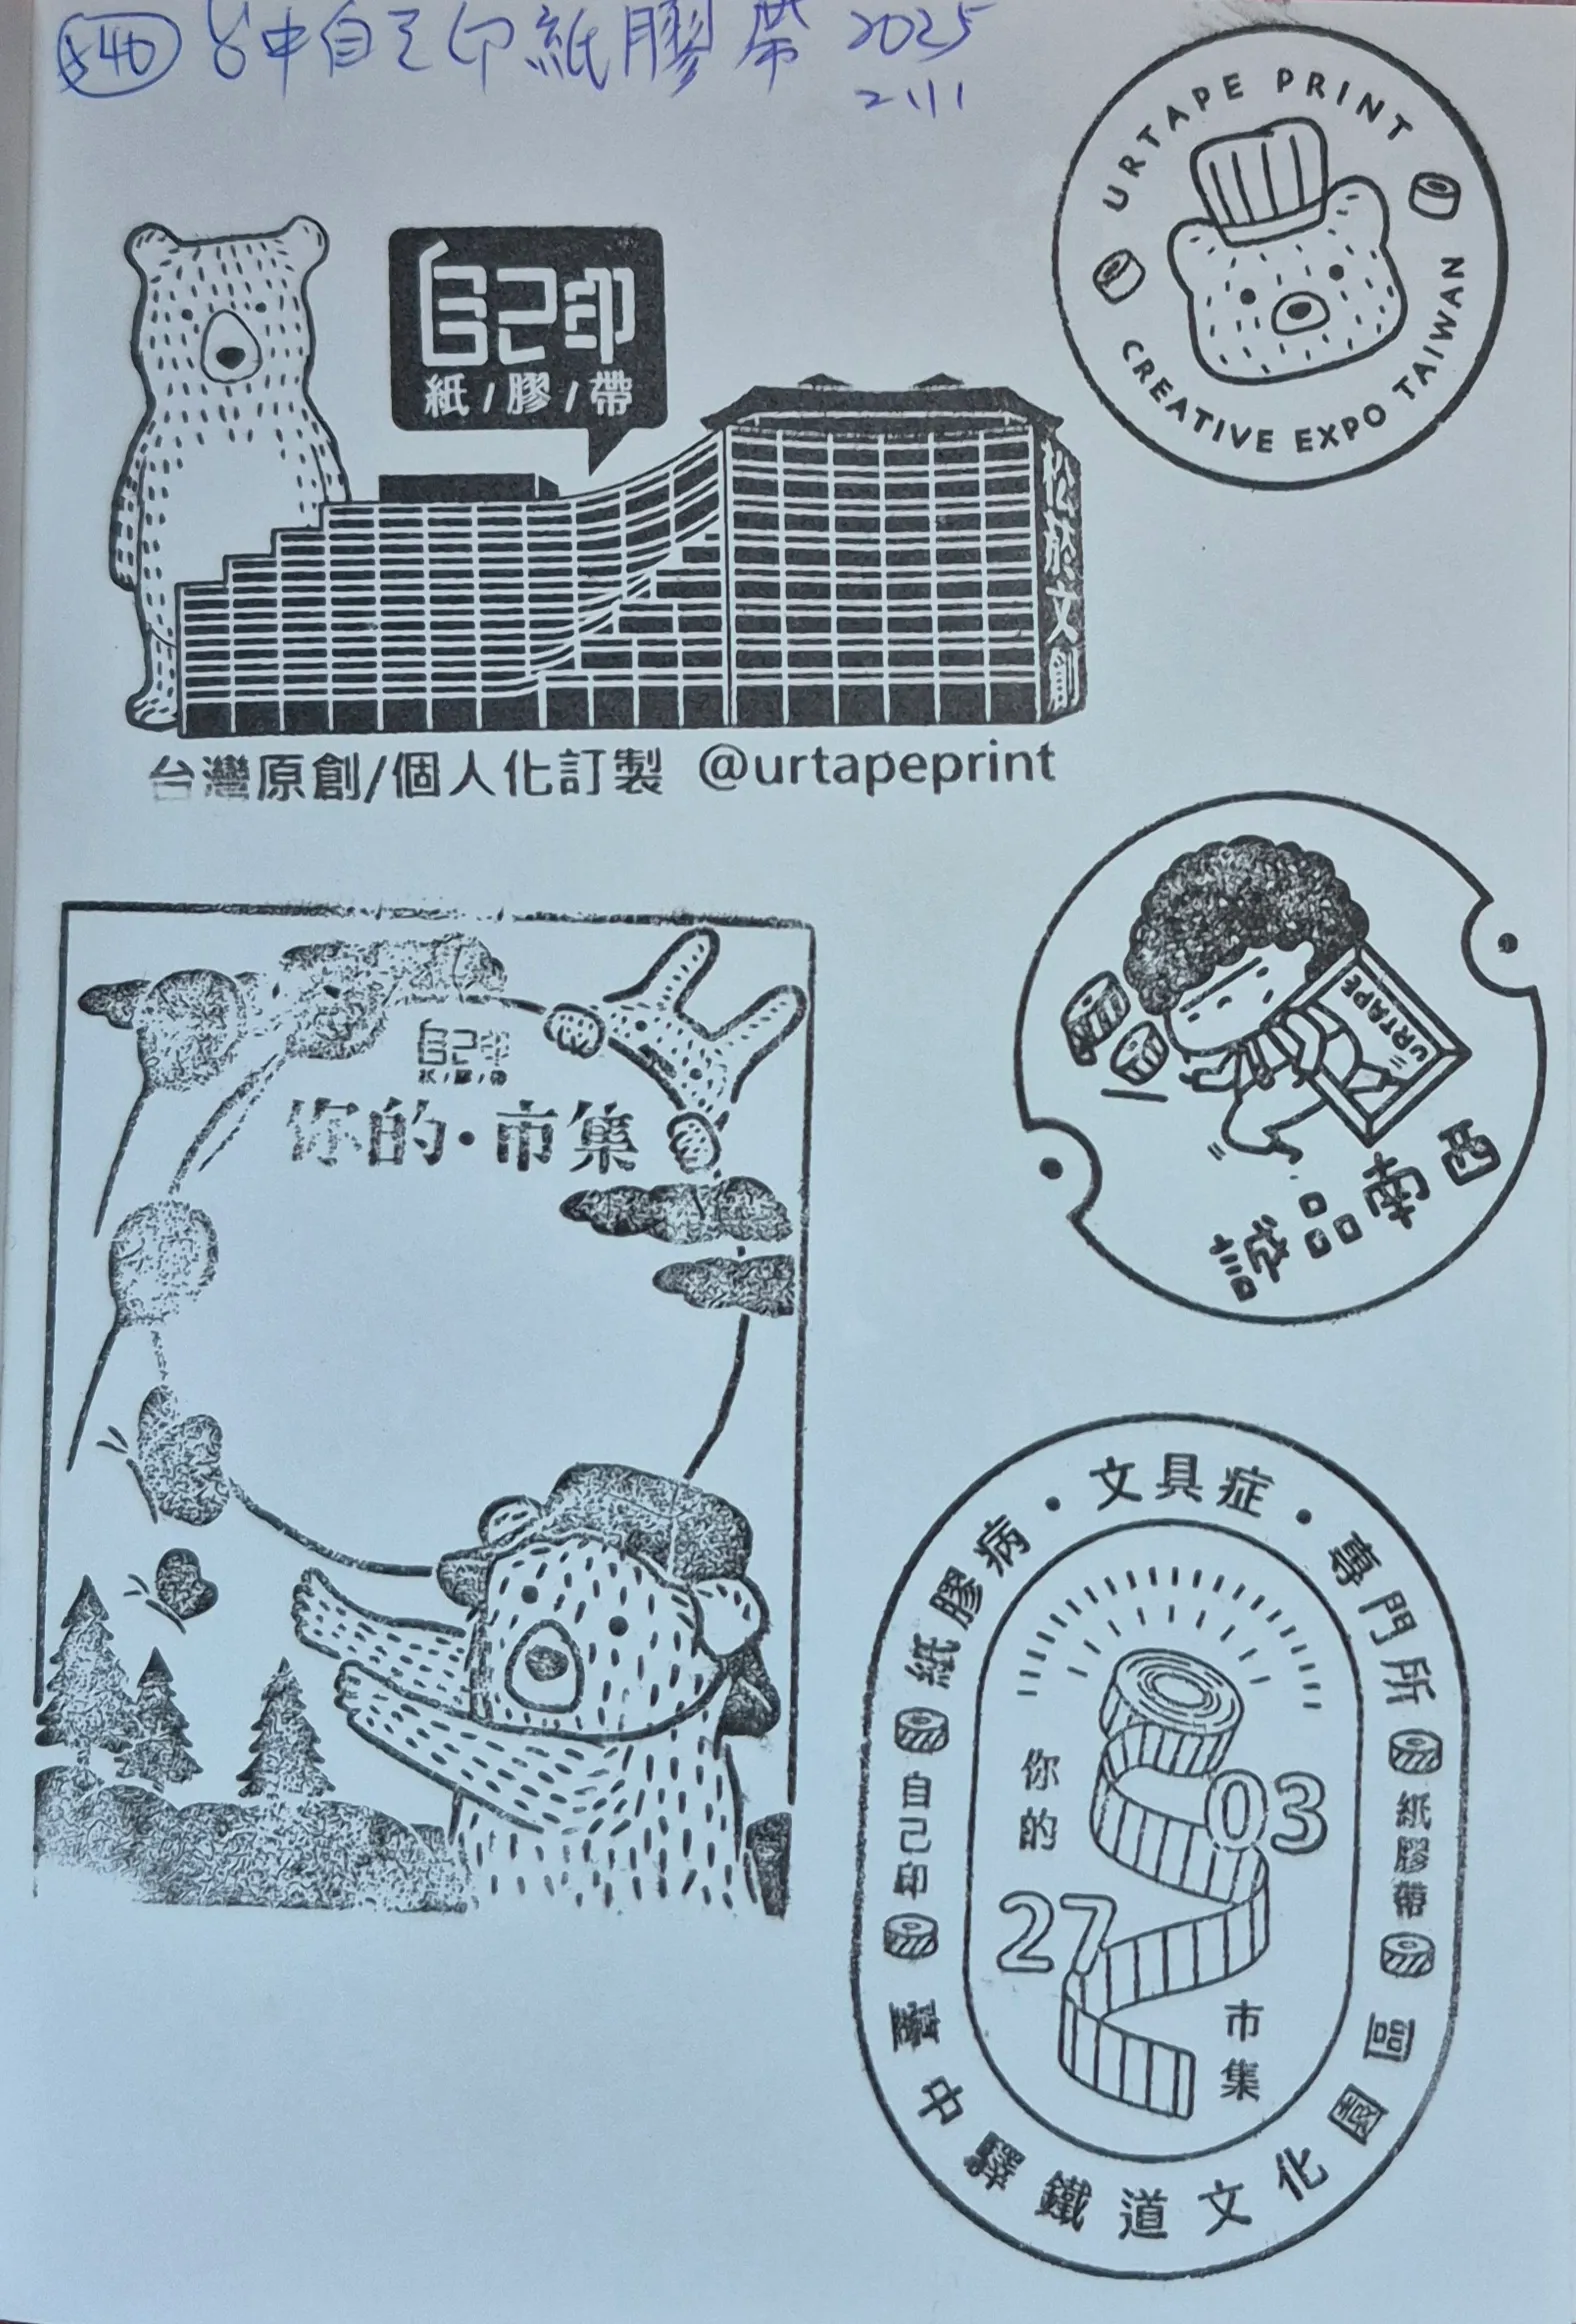 540 台中自己印紙膠帶 2025
2.11
URTAPE PRINT
CREATIVE EXPO TAIWAN
自己印
紙/膠/帶
松菸文創
台灣原創/個人化訂製 @urtapeprint
URTAPE
西南誠品
自己印
紙/膠/帶
你的·市集
紙膠病·文具症·專門所
自己印
紙膠帶
你的
03
27
市集
臺中驛鐵道文化園區